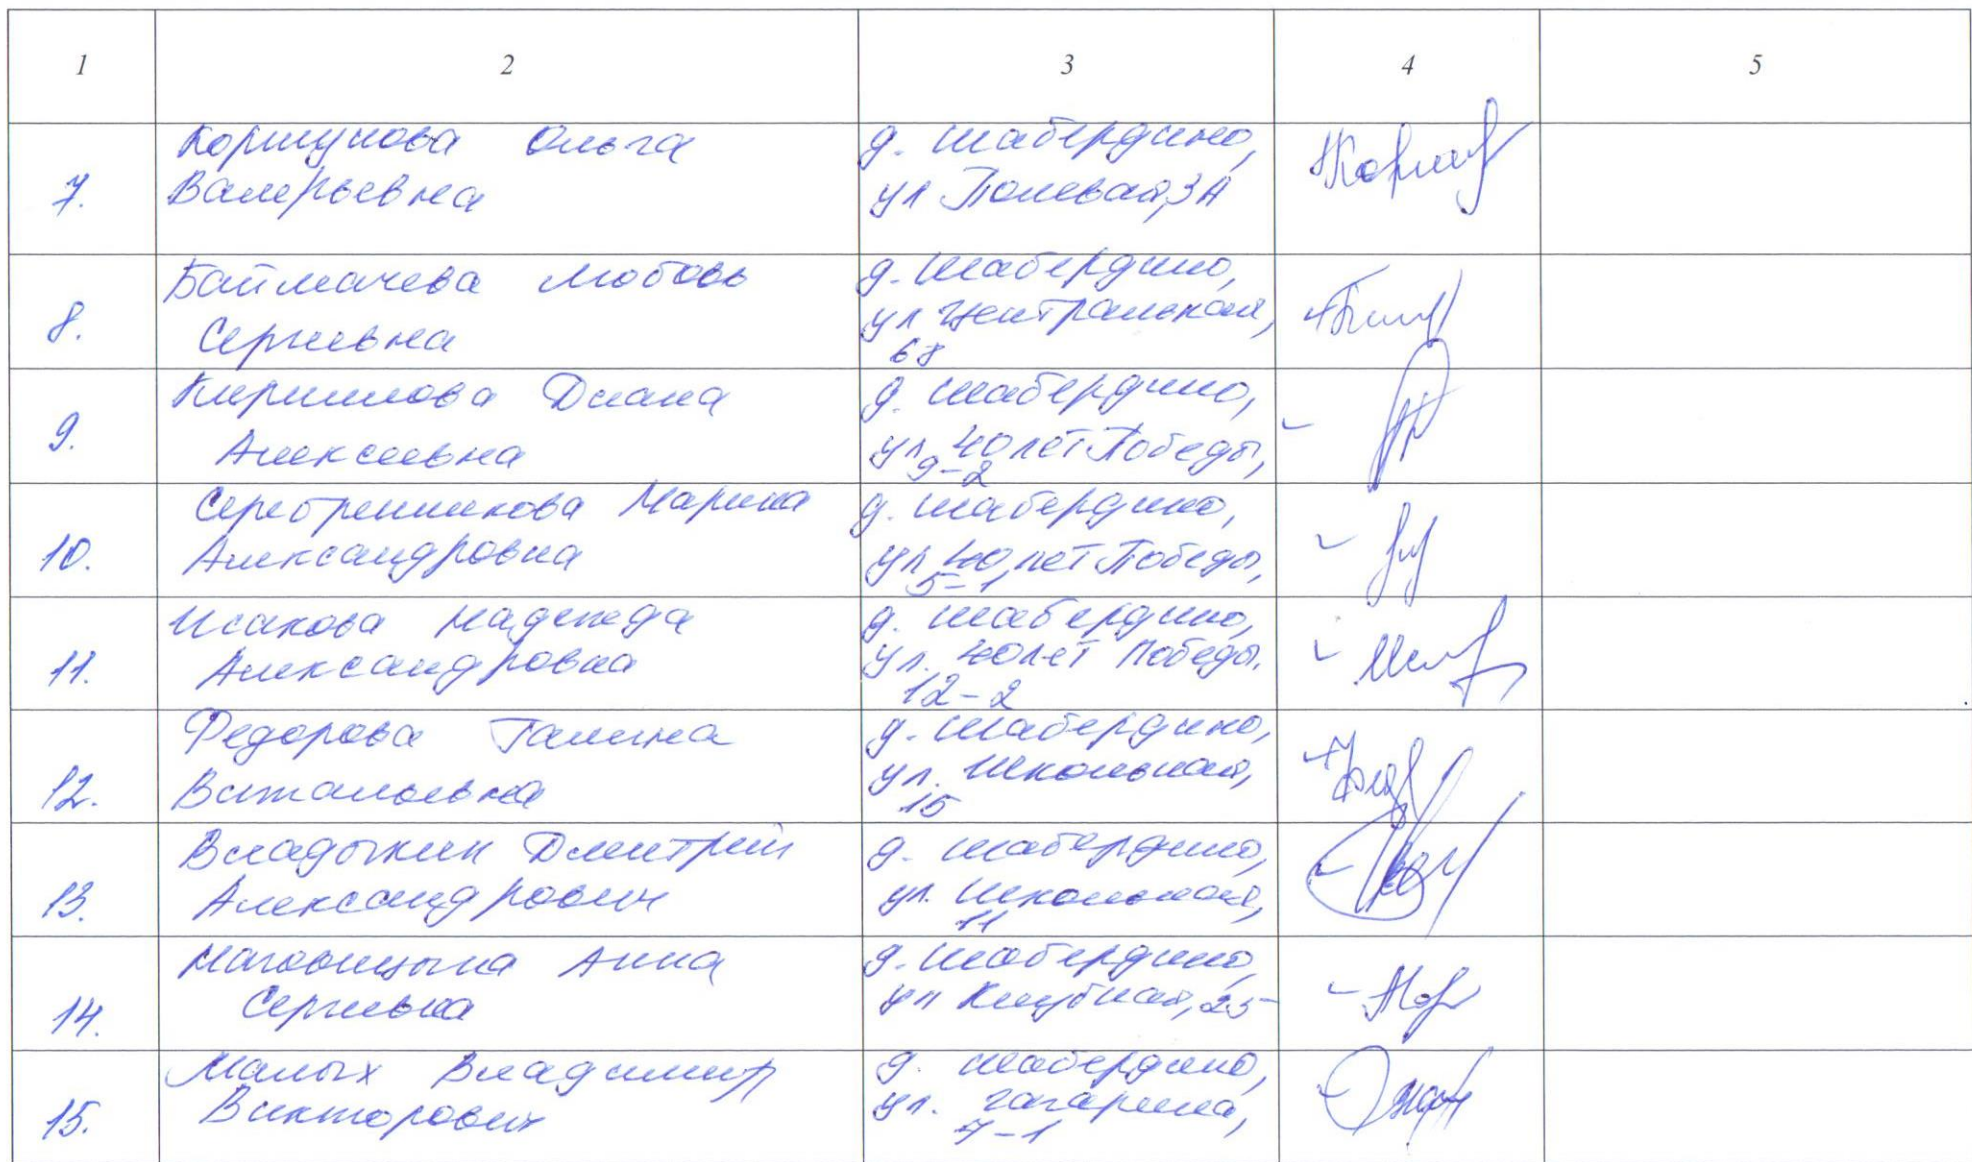 1 2 3 4 5
7. Коршунова Ольга
Валерьевна
д. Шабердино,
ул Полевая, 3А
8. Баймачева Любовь
Сергеевна
д. Шабердино,
ул Центральная,
68
9. Кириллова Диана
Алексеевна
д. Шабердино,
ул. 40 лет Победы,
9-2
10. Серебренникова Марина
Александровна
д. Шабердино,
ул 40 лет Победы,
5-1
11. Исакова Надежда
Александровна
д. Шабердино,
ул. 40 лет Победы,
12-2
12. Федорова Галина
Витальевна
д. Шабердино,
ул. Школьная,
15
13. Владыкин Дмитрий
Александрович
д. Шабердино,
ул. Школьная,
11
14. Наговицына Анна
Сергеевна
д. Шабердино,
ул Клубная, 25
15. Малых Владимир
Викторович
д. Шабердино,
ул. Гагарина,
7-1